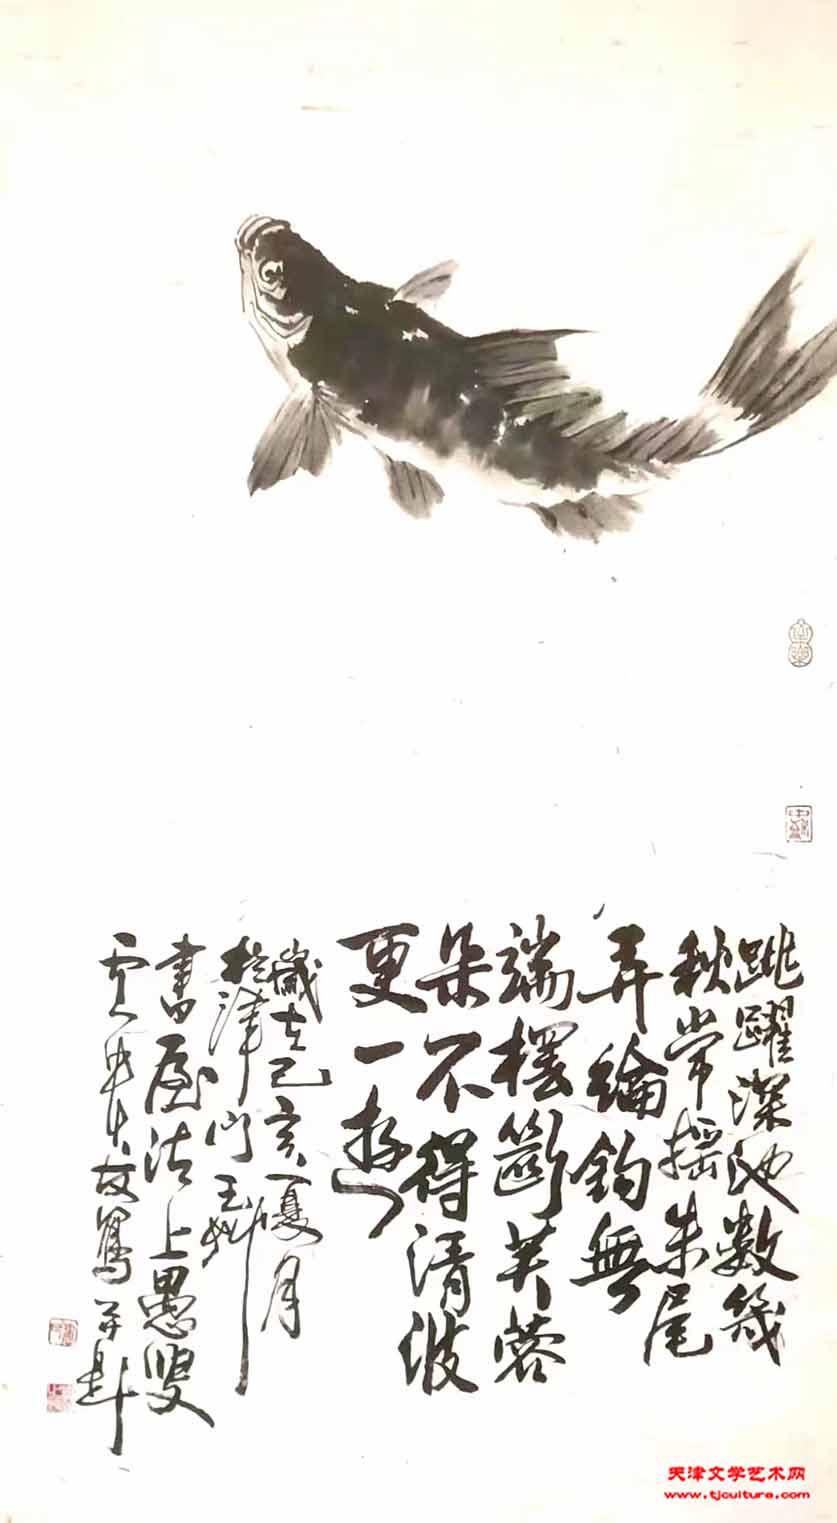 跳躍深池數幾
秋常摇朱尾
弄綸鈎無
端摆斷芙蓉
朵不得清波
更一游
歲在己亥夏月
於津门
書屋沽上愚叟
寫并題
天津文学艺术网
www.tjculture.com